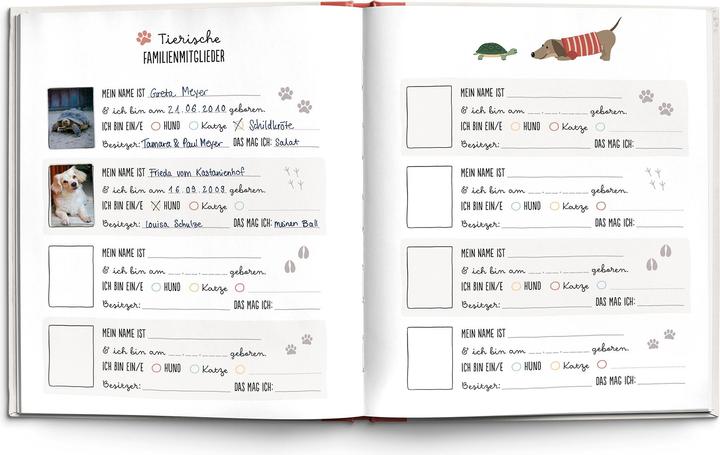 Tierische
FAMILIENMITGLIEDER
MEIN NAME IST Greta Meyer
& ich bin am 21.06.2010 geboren.
ICH BIN EIN/E HUND Katze Schildkröte
Besitzer: Tamara & Paul Meyer DAS MAG ICH: Salat
MEIN NAME IST Frieda vom Kastanienhof
& ich bin am 16.09.2009 geboren.
ICH BIN EIN/E HUND Katze
Besitzer: Louisa Schulze DAS MAG ICH: meinen Ball
MEIN NAME IST
& ich bin am __.__.____ geboren.
ICH BIN EIN/E HUND Katze
Besitzer: DAS MAG ICH:
MEIN NAME IST
& ich bin am __.__.____ geboren.
ICH BIN EIN/E HUND Katze
Besitzer: DAS MAG ICH:
MEIN NAME IST
& ich bin am __.__.____ geboren.
ICH BIN EIN/E HUND Katze
Besitzer: DAS MAG ICH:
MEIN NAME IST
& ich bin am __.__.____ geboren.
ICH BIN EIN/E HUND Katze
Besitzer: DAS MAG ICH:
MEIN NAME IST
& ich bin am __.__.____ geboren.
ICH BIN EIN/E HUND Katze
Besitzer: DAS MAG ICH:
MEIN NAME IST
& ich bin am __.__.____ geboren.
ICH BIN EIN/E HUND Katze
Besitzer: DAS MAG ICH: